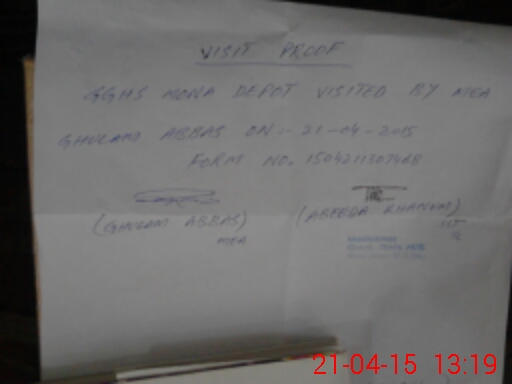 VISIT PROOF
GGHS MONA DEPOT VISITED BY MEA
GHULAM ABBAS ON:- 21-04-2015
FORM NO. 1504211307468
(GHULAM ABBAS) (ABEEDA KHANUM)
MEA
21-04-15 13:19